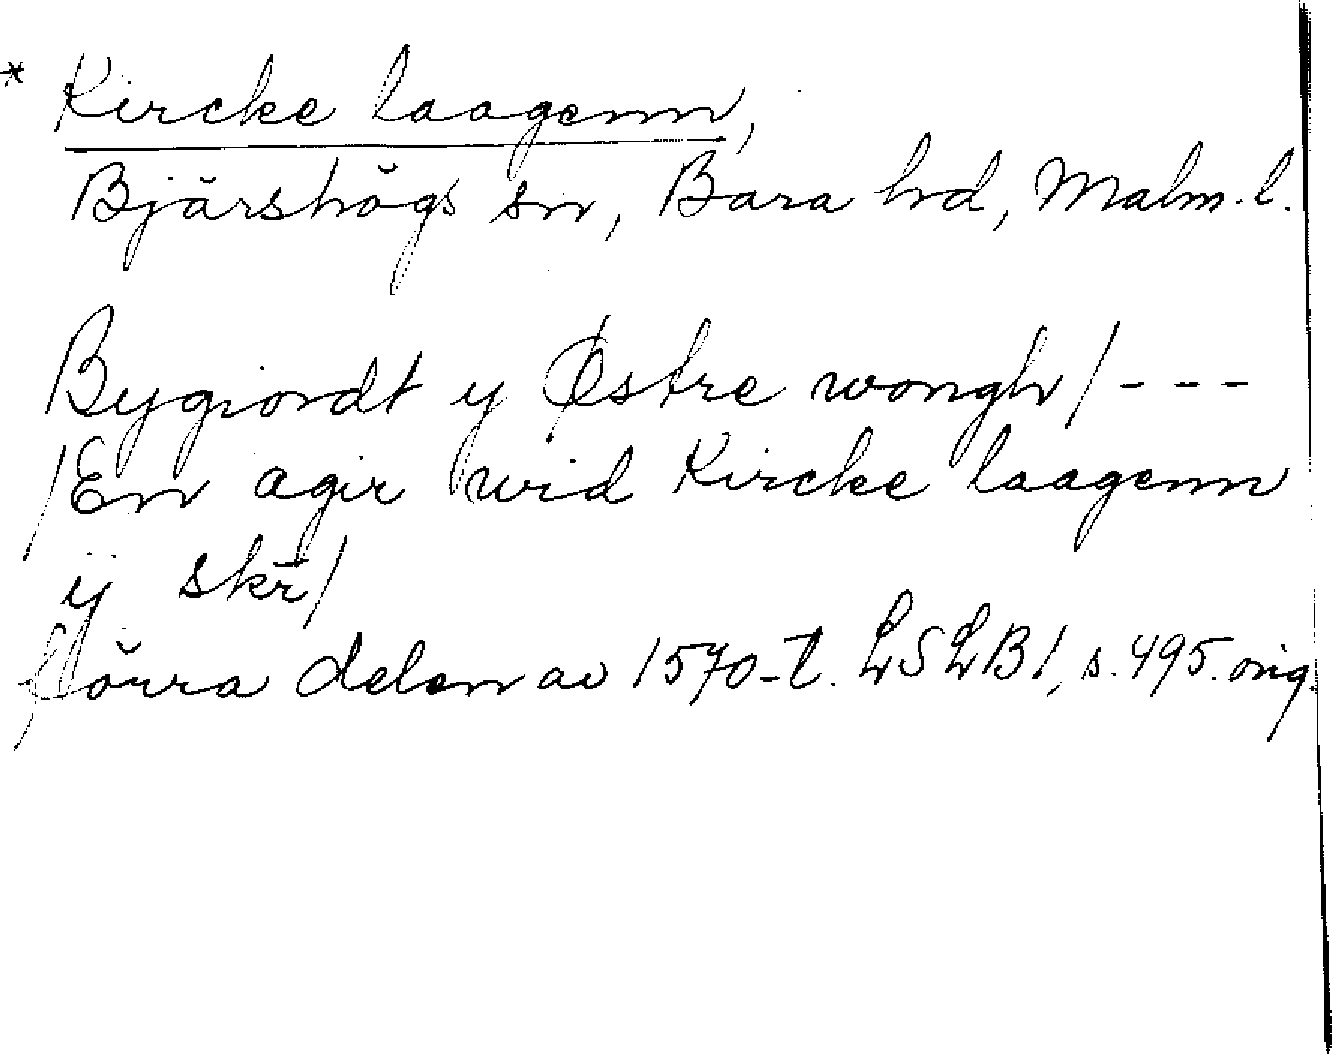 * Kircke laagenn,
Bjärshögs sn, Bara hd, Malm. l.
Bygiordt y Østre wongh / ---
/ En agir wid Kircke laagenn
ÿ skr̄ /
förra delen av 1570-t. LSLB 1, s. 495. orig.